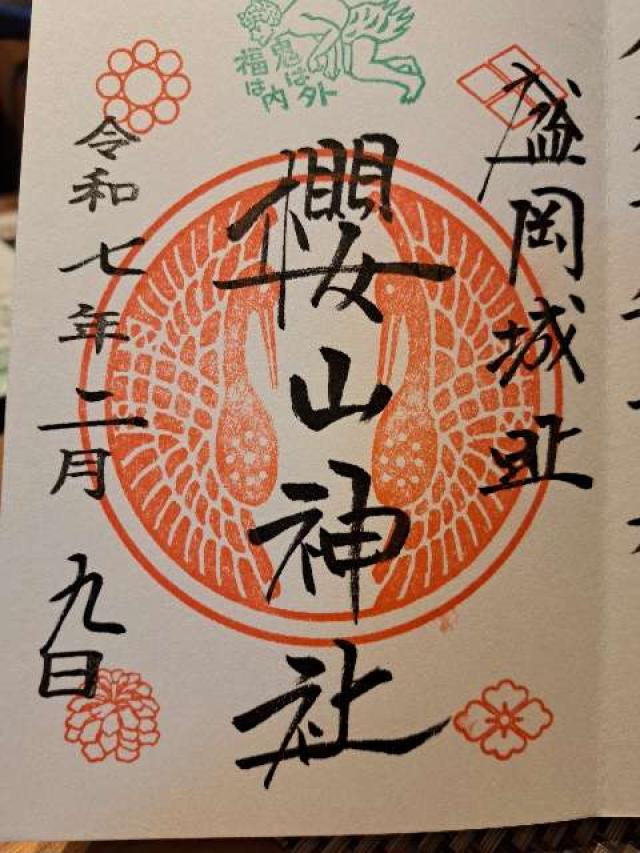 盛岡城址
鬼は外
福は内
櫻山神社
令和七年二月九日